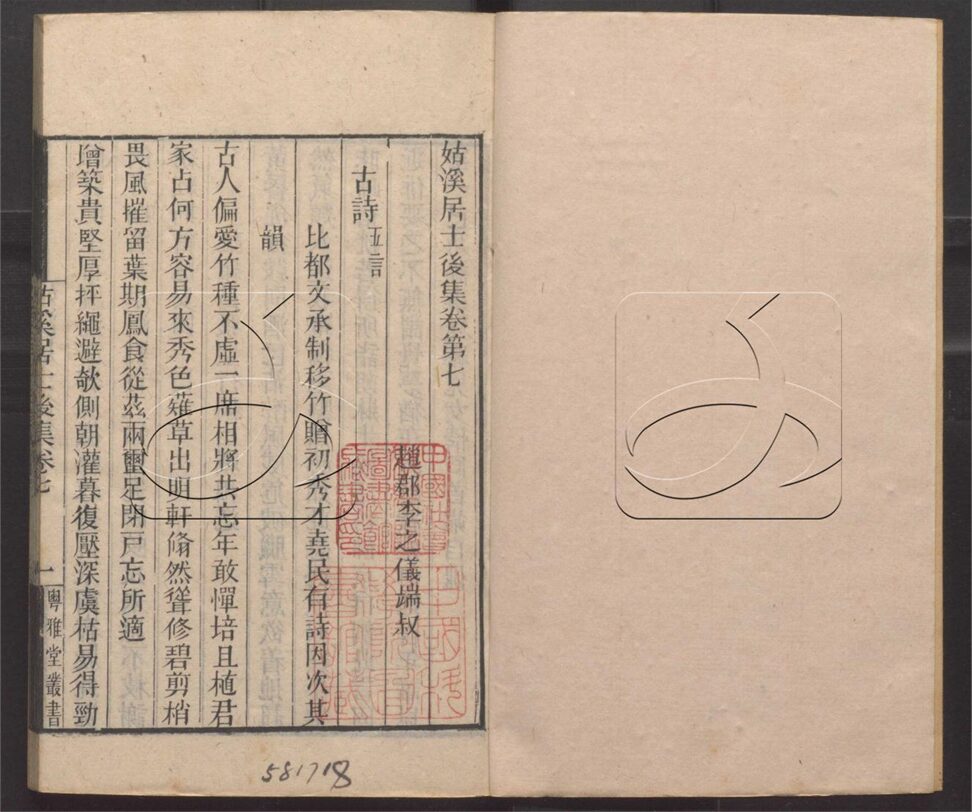 姑溪居士後集卷第七
趙郡李之儀端叔
古詩五言
比都文承制移竹贈初秀才堯民有詩因次其
韻
古人偏愛竹種不虛一席相將共忘年敢憚培且植君
家占何方容易來秀色薙草出明軒翛然聳修碧剪梢
畏風摧留葉期鳳食從茲兩璽足閉戸忘所適
增築貴堅厚抨繩避欹側朝灌暮復壓深虞枯易得勁
姑溪居士後集卷七
一
粤雅堂叢書
581718